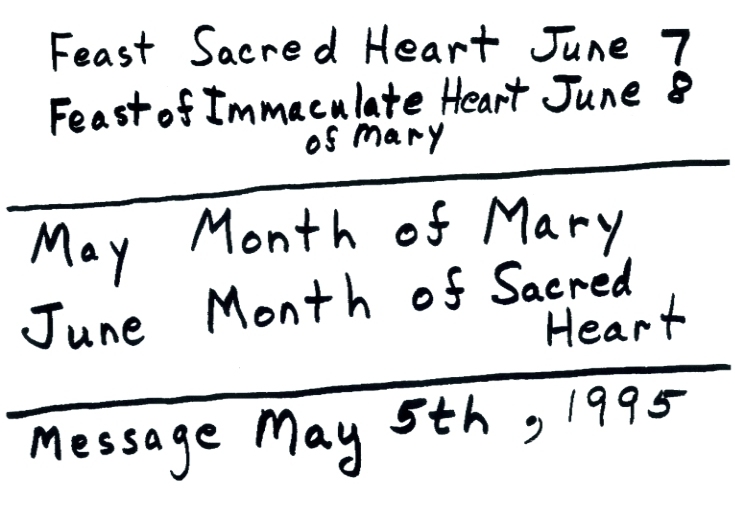 Feast Sacred Heart June 7
Feast of Immaculate Heart June 8
of Mary
May Month of Mary
June Month of Sacred
Heart
Message May 5th, 1995